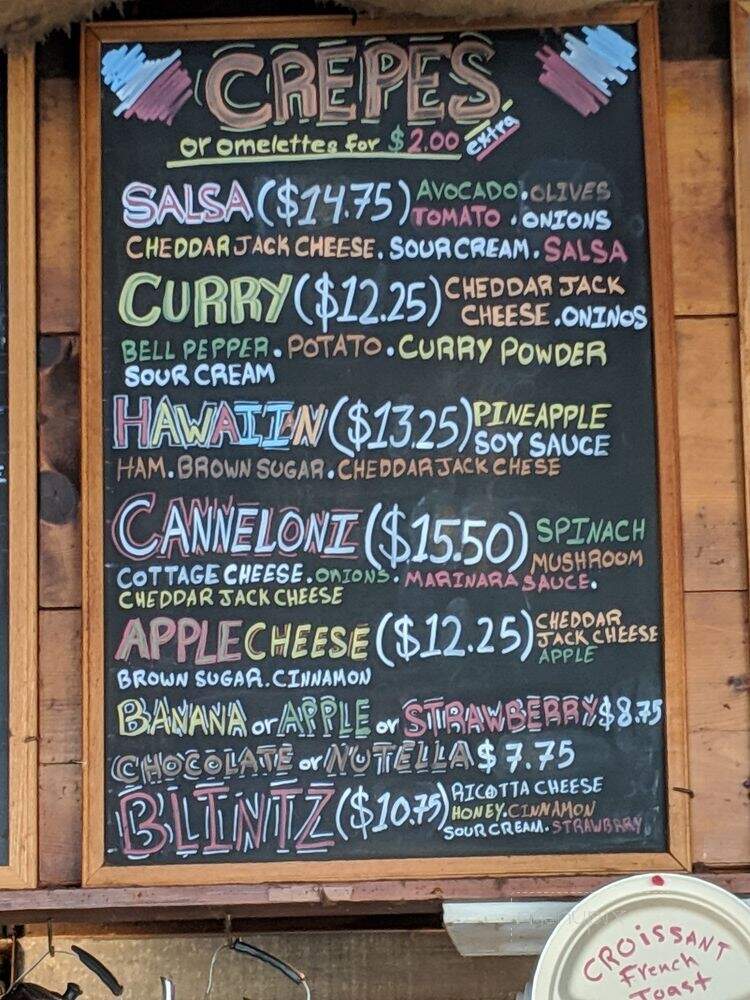 CREPES
or omelettes for $2.00 extra
SALSA ($14.75) AVOCADO . OLIVES
TOMATO . ONIONS
CHEDDAR JACK CHEESE . SOUR CREAM . SALSA
CURRY ($12.25) CHEDDAR JACK
CHEESE . ONINOS
BELL PEPPER . POTATO . CURRY POWDER
SOUR CREAM
HAWAIIN ($13.25) PINEAPPLE
SOY SAUCE
HAM . BROWN SUGAR . CHEDDAR JACK CHESE
CANNELONI ($15.50) SPINACH
MUSHROOM
COTTAGE CHEESE . ONIONS . MARINARA SAUCE .
CHEDDAR JACK CHEESE
APPLE CHEESE ($12.25) CHEDDAR
JACK CHEESE
APPLE
BROWN SUGAR . CINNAMON
BANANA or APPLE or STRAWBERRY $8.75
CHOCOLATE or NUTELLA $7.75
BLINTZ ($10.75) RICOTTA CHEESE
HONEY . CINNAMON
SOUR CREAM . STRAWBRRY
CROISSANT
French
Toast